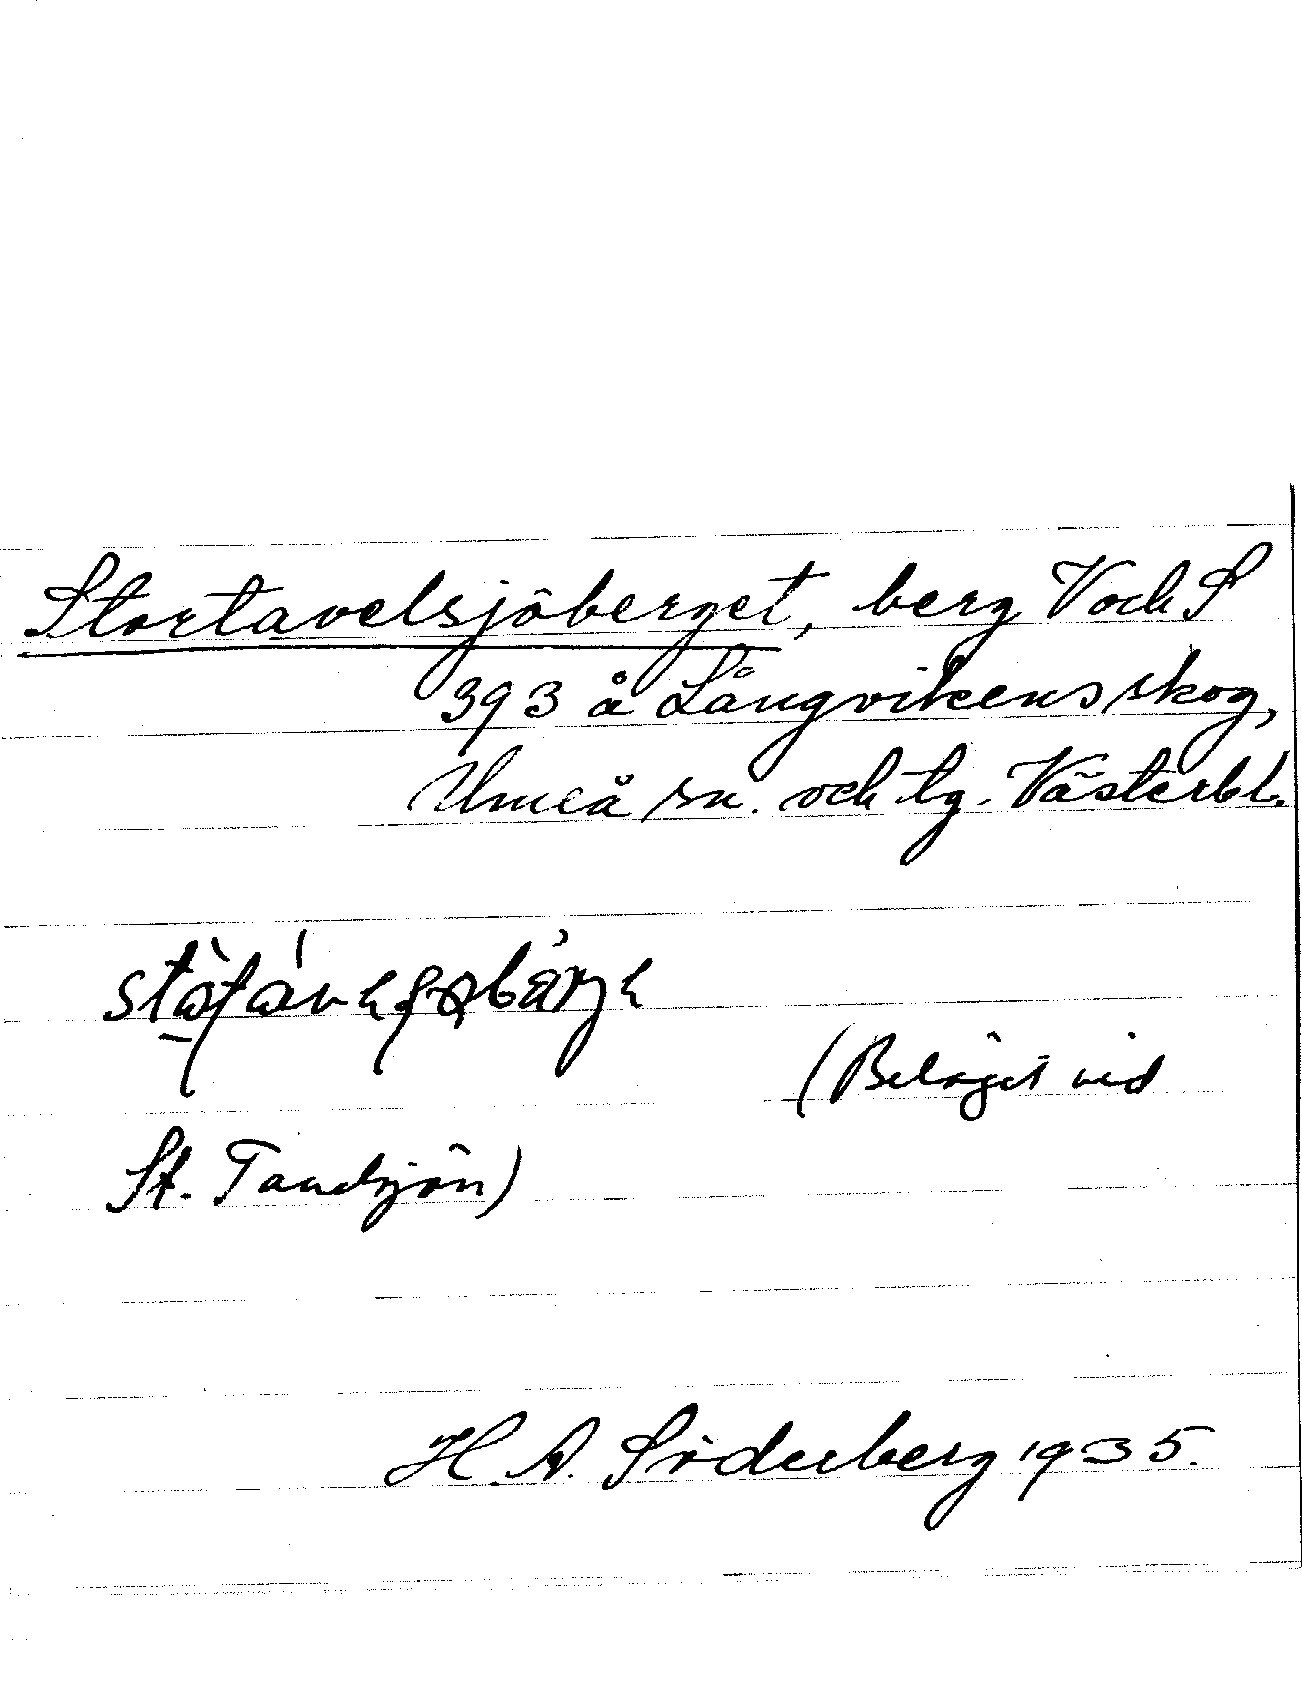 Stortavelsjöberget, berg V och S
393 å Långvikens skog,
Umeå sn. och tg. Västerbt.
(Beläget vid
St. Tavelsjön)
H. A. Söderberg 1935.